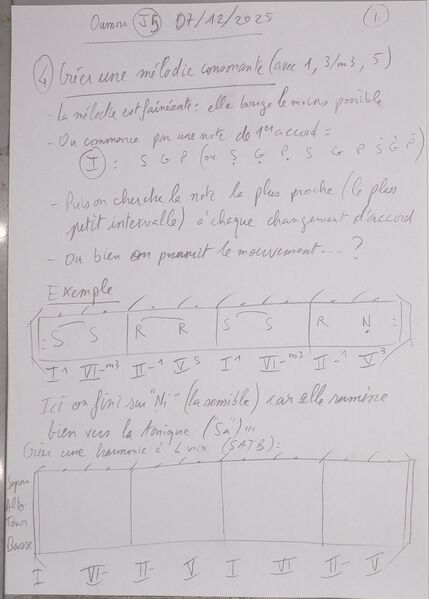 Oumou J5 07/12/2025 1
4 Créer une mélodie consonante (avec 1, 3/m3, 5)
- La mélodie est fainéante : elle bouge le moins possible
- On commence par une note de 1er accord =
I : S G P (ou Ṣ G̣ P̣ S G P Ṡ Ġ Ṗ)
- Puis on cherche la note la plus proche (le plus
petit intervalle) à chaque changement d'accord
- Ou bien on poursuit le mouvement.... ?
Exemple
S S R R S S R Ṇ
I¹ VI-m3 II-1 V5 I¹ VI-m3 II-1 V3
Ici on finit sur "Ni" (la sensible) car elle ramène
bien vers la tonique ("Sa") !!!
Créer une harmonie à 4 voix (SATB) :
Sopra
Alto
Tenor
Basse
I VI- II- V I VI II- V